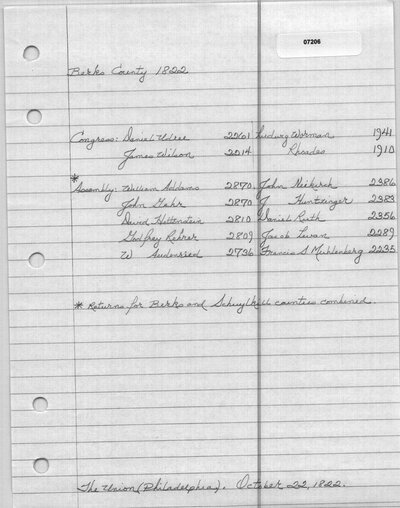 07206
Berks County 1822
Congress: Daniel Udree 2261 Ludwig Worman 1941
James Wilson 2214 Rhoades 1910
*
Assembly: William Addams 2870 John Neikirch 2386
John Gehr 2870 J Huntzinger 2383
David Hottenstein 2810 Daniel Ruth 2356
Godfrey Rehrer 2809 Jacob Levan 2289
W Audenried 2736 Francis S Muhlenberg 2235
* Returns for Berks and Schuylkill counties combined.
The Union (Philadelphia). October 22, 1822.